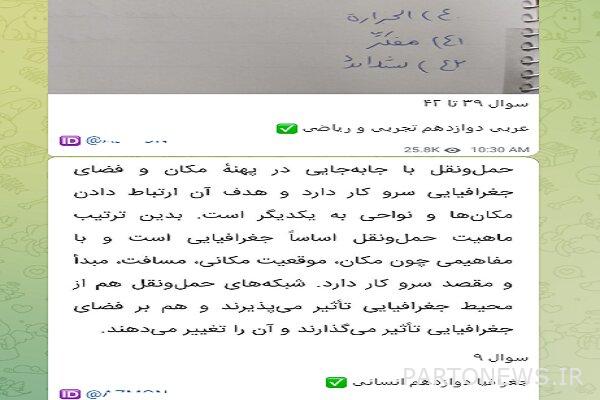 ٤٠) الحرارة
٤١) مفکّر
٤٢) شدائد
سوال ۳۹ تا ۴۲
عربی دوازدهم تجربی و ریاضی ✅
🆔 @
25.8K 10:30 AM
حمل‌ونقل با جابه‌جایی در پهنهٔ مکان و فضای
جغرافیایی سرو کار دارد و هدف آن ارتباط دادن
مکان‌ها و نواحی به یکدیگر است. بدین ترتیب
ماهیت حمل‌ونقل اساساً جغرافیایی است و با
مفاهیمی چون مکان، موقعیت مکانی، مسافت، مبدأ
و مقصد سرو کار دارد. شبکه‌های حمل‌ونقل هم از
محیط جغرافیایی تأثیر می‌پذیرند و هم بر فضای
جغرافیایی تأثیر می‌گذارند و آن را تغییر می‌دهند.
سوال ۹
جغرافیا دوازدهم انسانی ✅
PARTONEWS.IR
🆔 @